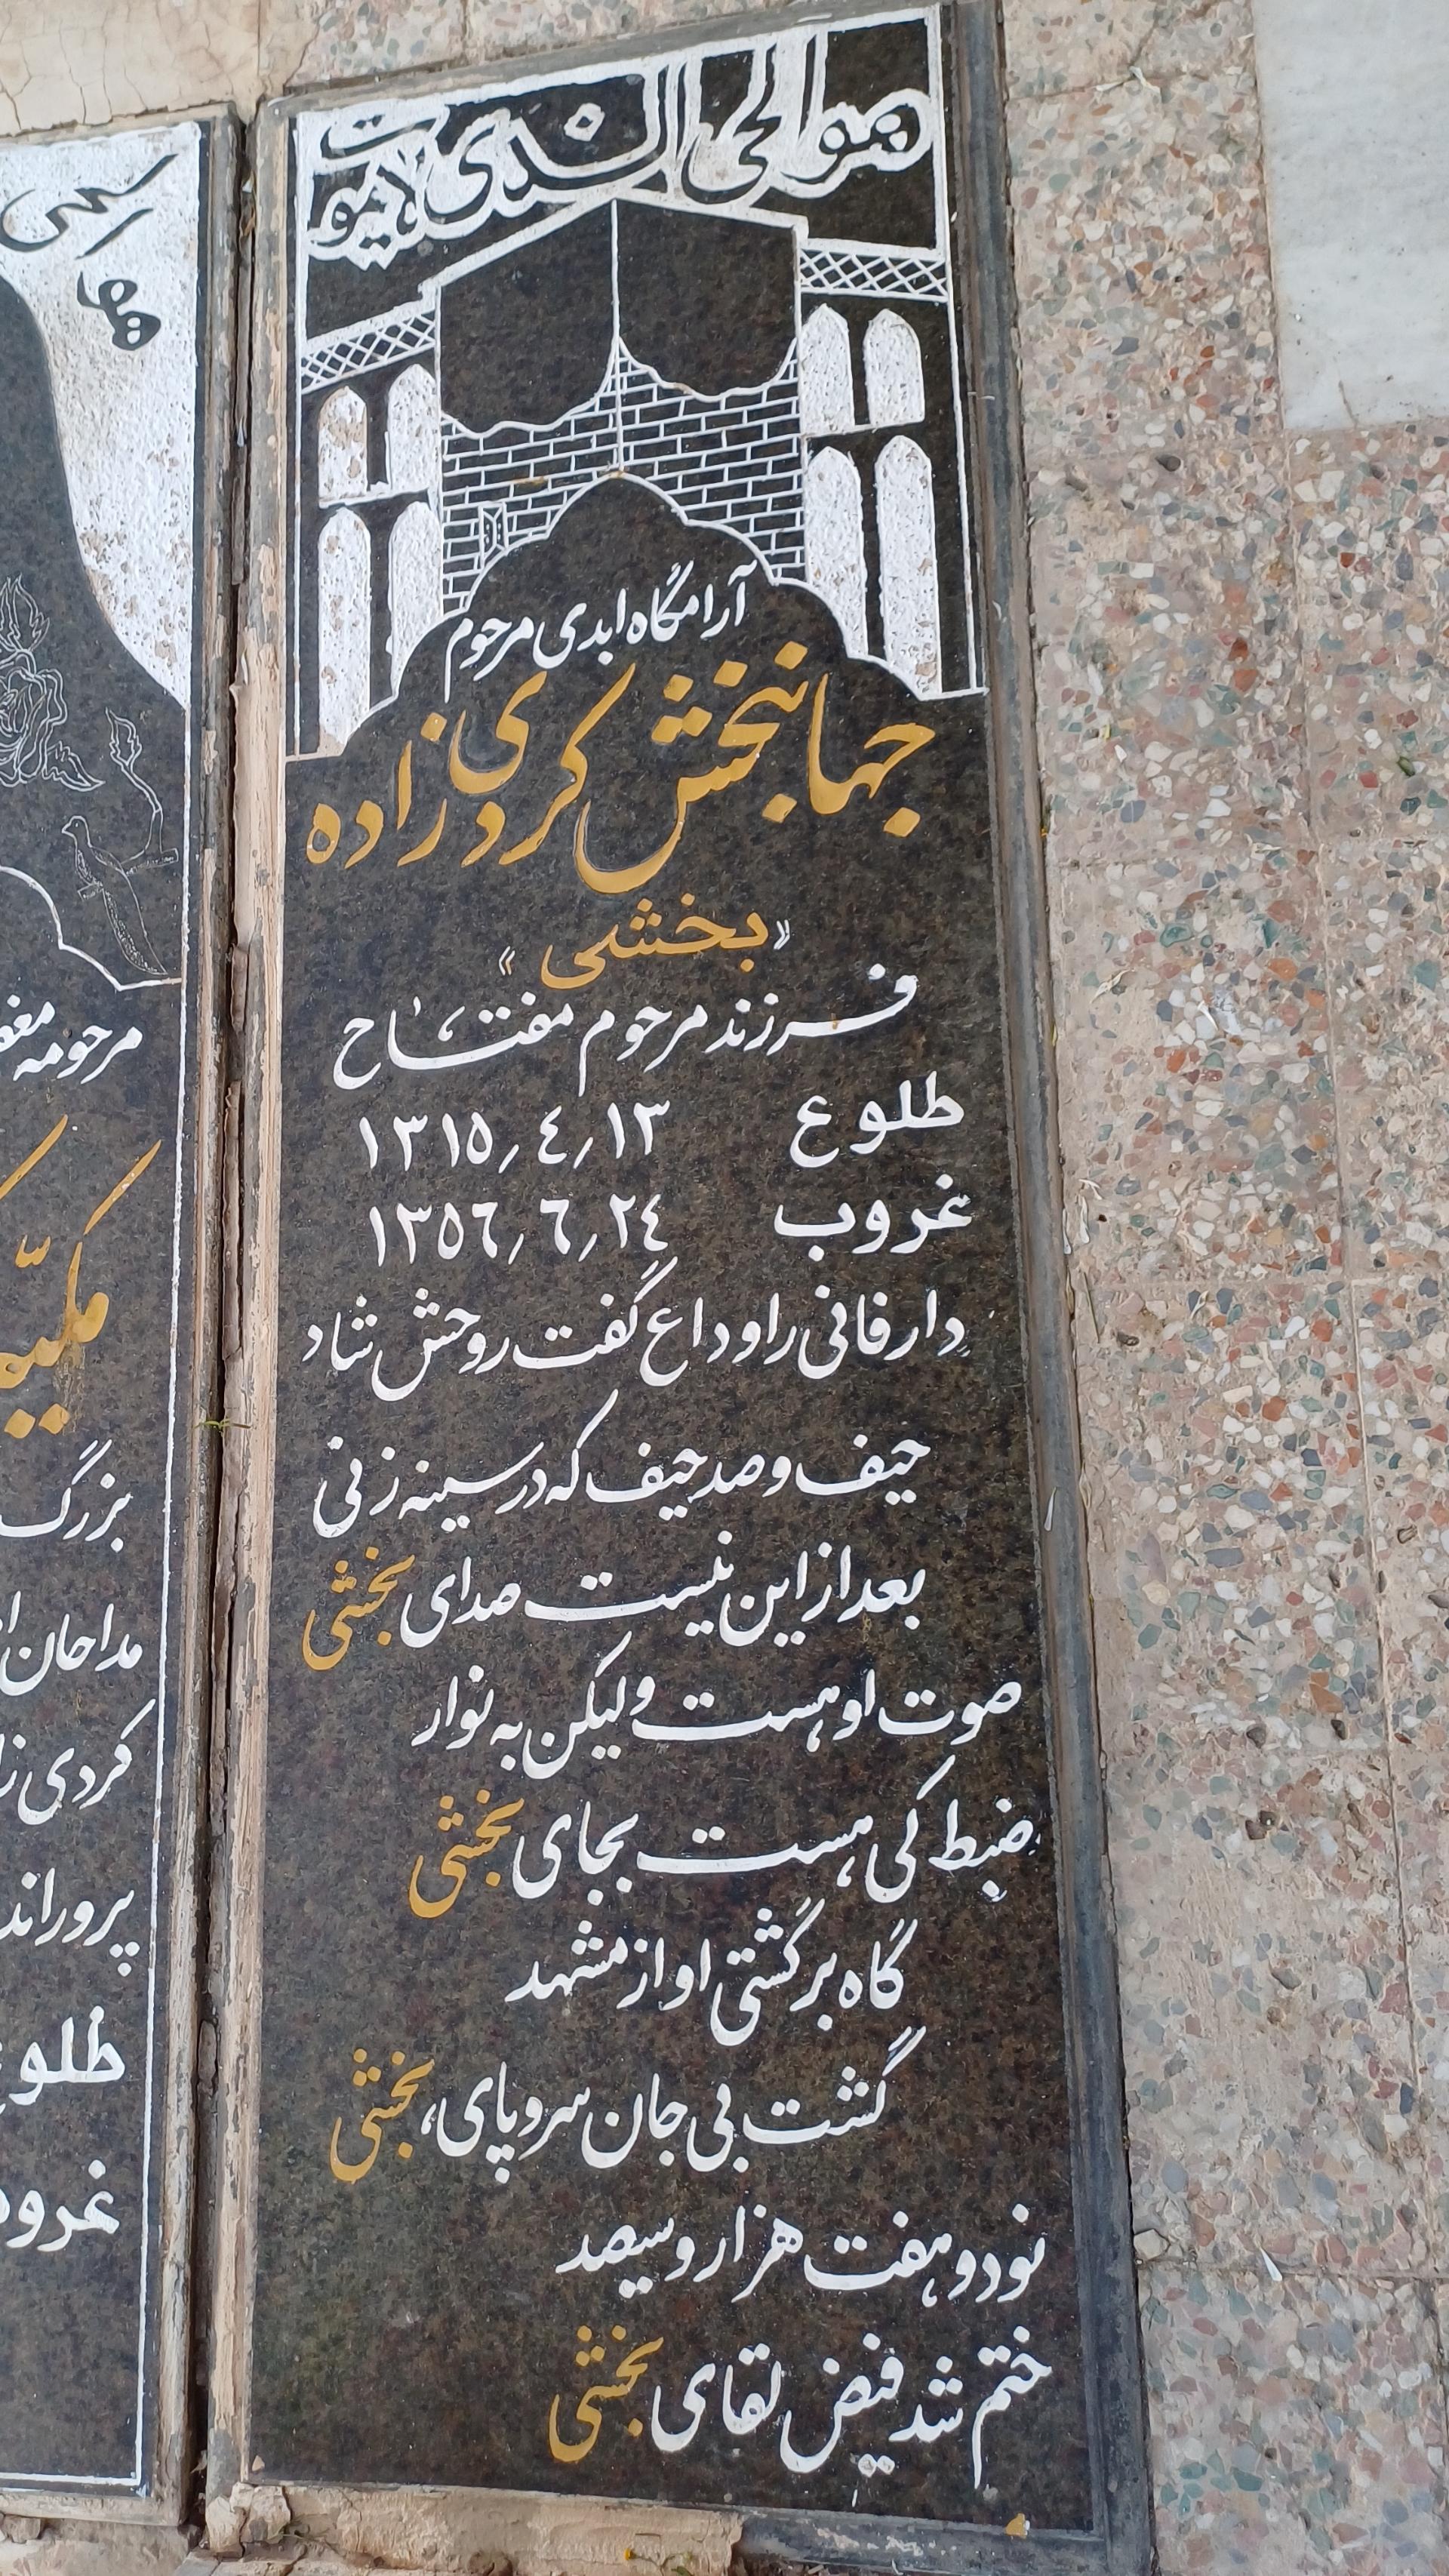 هوالحی الذی لایموت
آرامگاه ابدی مرحوم
جهانبخش کردی زاده
«بخشی»
فرزند مرحوم مفتاح
طلوع ١٣٫٤٫١٣١٥
غروب ٢٤٫٦٫١٣٥٦
دار فانی را وداع گفت روحش شاد
حیف و صد حیف که در سینه زنی
بعد از این نیست صدای بخشی
صوت او هست ولیکن به نوار
ضبط کی هست بجای بخشی
گاه برگشتی او از مشهد
گشت بی جان سروپای، بخشی
نود و هفت هزار و سیصد
ختم شد فیض لقای بخشی
هو الحی
مرحومه
مکیه
بزرگ
مداحان
کردی
طلوع